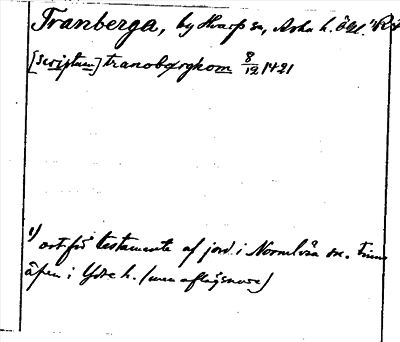 Tranberga, by Hvarfs sn, Aska h. ögl. R
[scriptum] tranobærgkom 8/12 1421
1) ort för testamente af jord i Normlösa sn. Finns
äfven i Ydre h. (men aflägsnare)